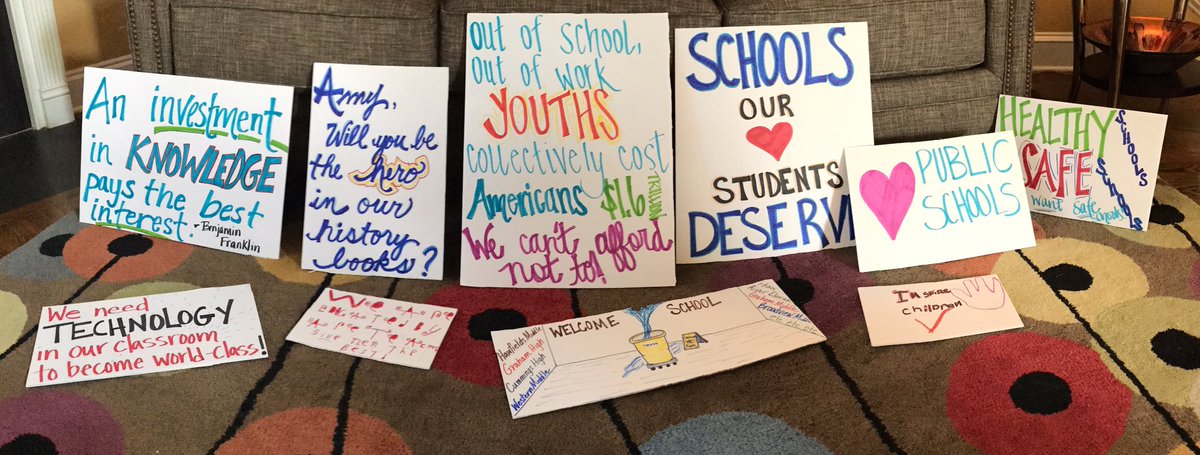 An investment
in KNOWLEDGE
pays the best
interest.
- Benjamin
Franklin
Amy,
Will you be
the hero
in our
history
books?
Out of school,
Out of work
YOUTHS
collectively cost
Americans $1.6
TRILLION
We can't afford
not to!
SCHOOLS
OUR
STUDENTS
DESERVE
PUBLIC
SCHOOLS
HEALTHY
SAFE
SCHOOLS
SCHOOLS
want safe
schools
We need
TECHNOLOGY
in our classroom
to become world-class!
We
WELCOME SCHOOL
Hawfields Middle
Graham High
Cummings High
Western Middle
Graham Middle
Broadview Middle
etc etc etc
children